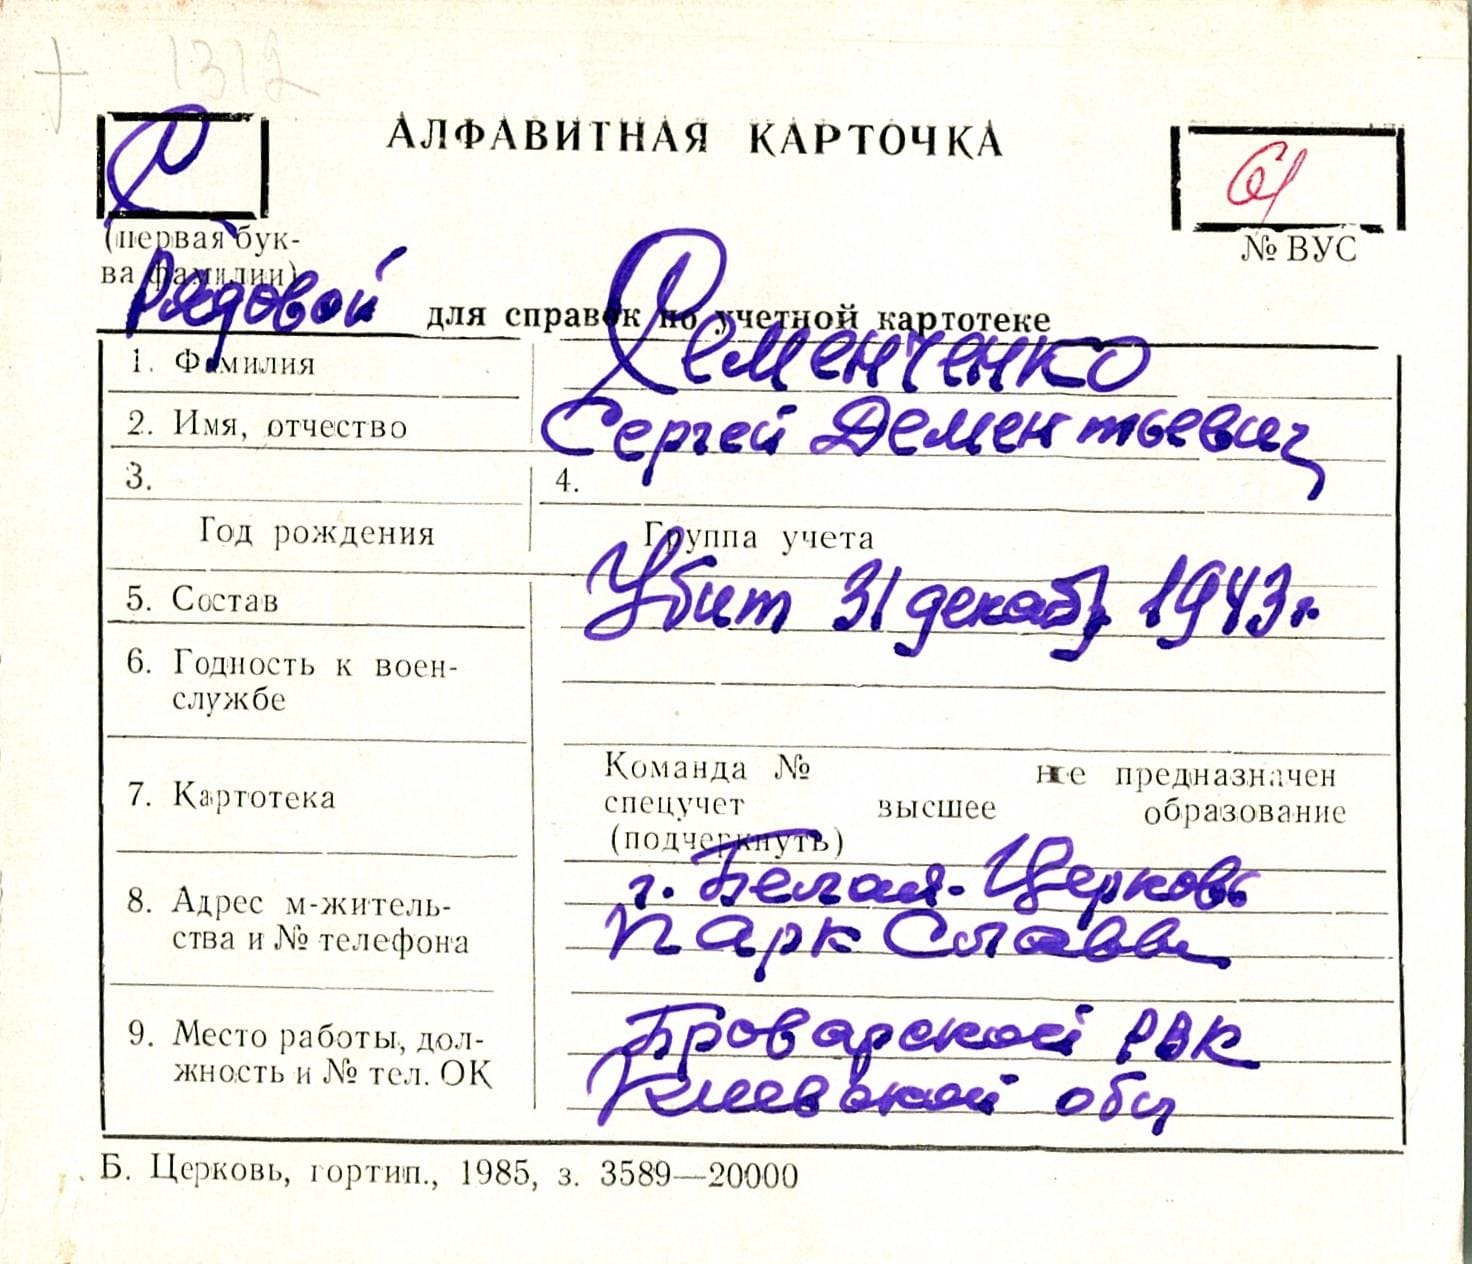 1312
АЛФАВИТНАЯ КАРТОЧКА
61
(первая бук-
ва фамилии)
№ ВУС
Рядовой
для справок по учетной картотеке
1. Фамилия
2. Имя, отчество Сергей Дементьевич
3. 4.
Год рождения Группа учета
5. Состав Убит 31 декабр 1943 г.
6. Годность к воен-
службе
7. Картотека
Команда № не предназначен
спецучет высшее образование
(подчеркнуть)
8. Адрес м-житель-
ства и № телефона
г. Белая-Церковь
парк Славы
9. Место работы, дол-
жность и № тел. ОК
Броварской РВК
Киевской обл
Б. Церковь, гортип., 1985, з. 3589—20000